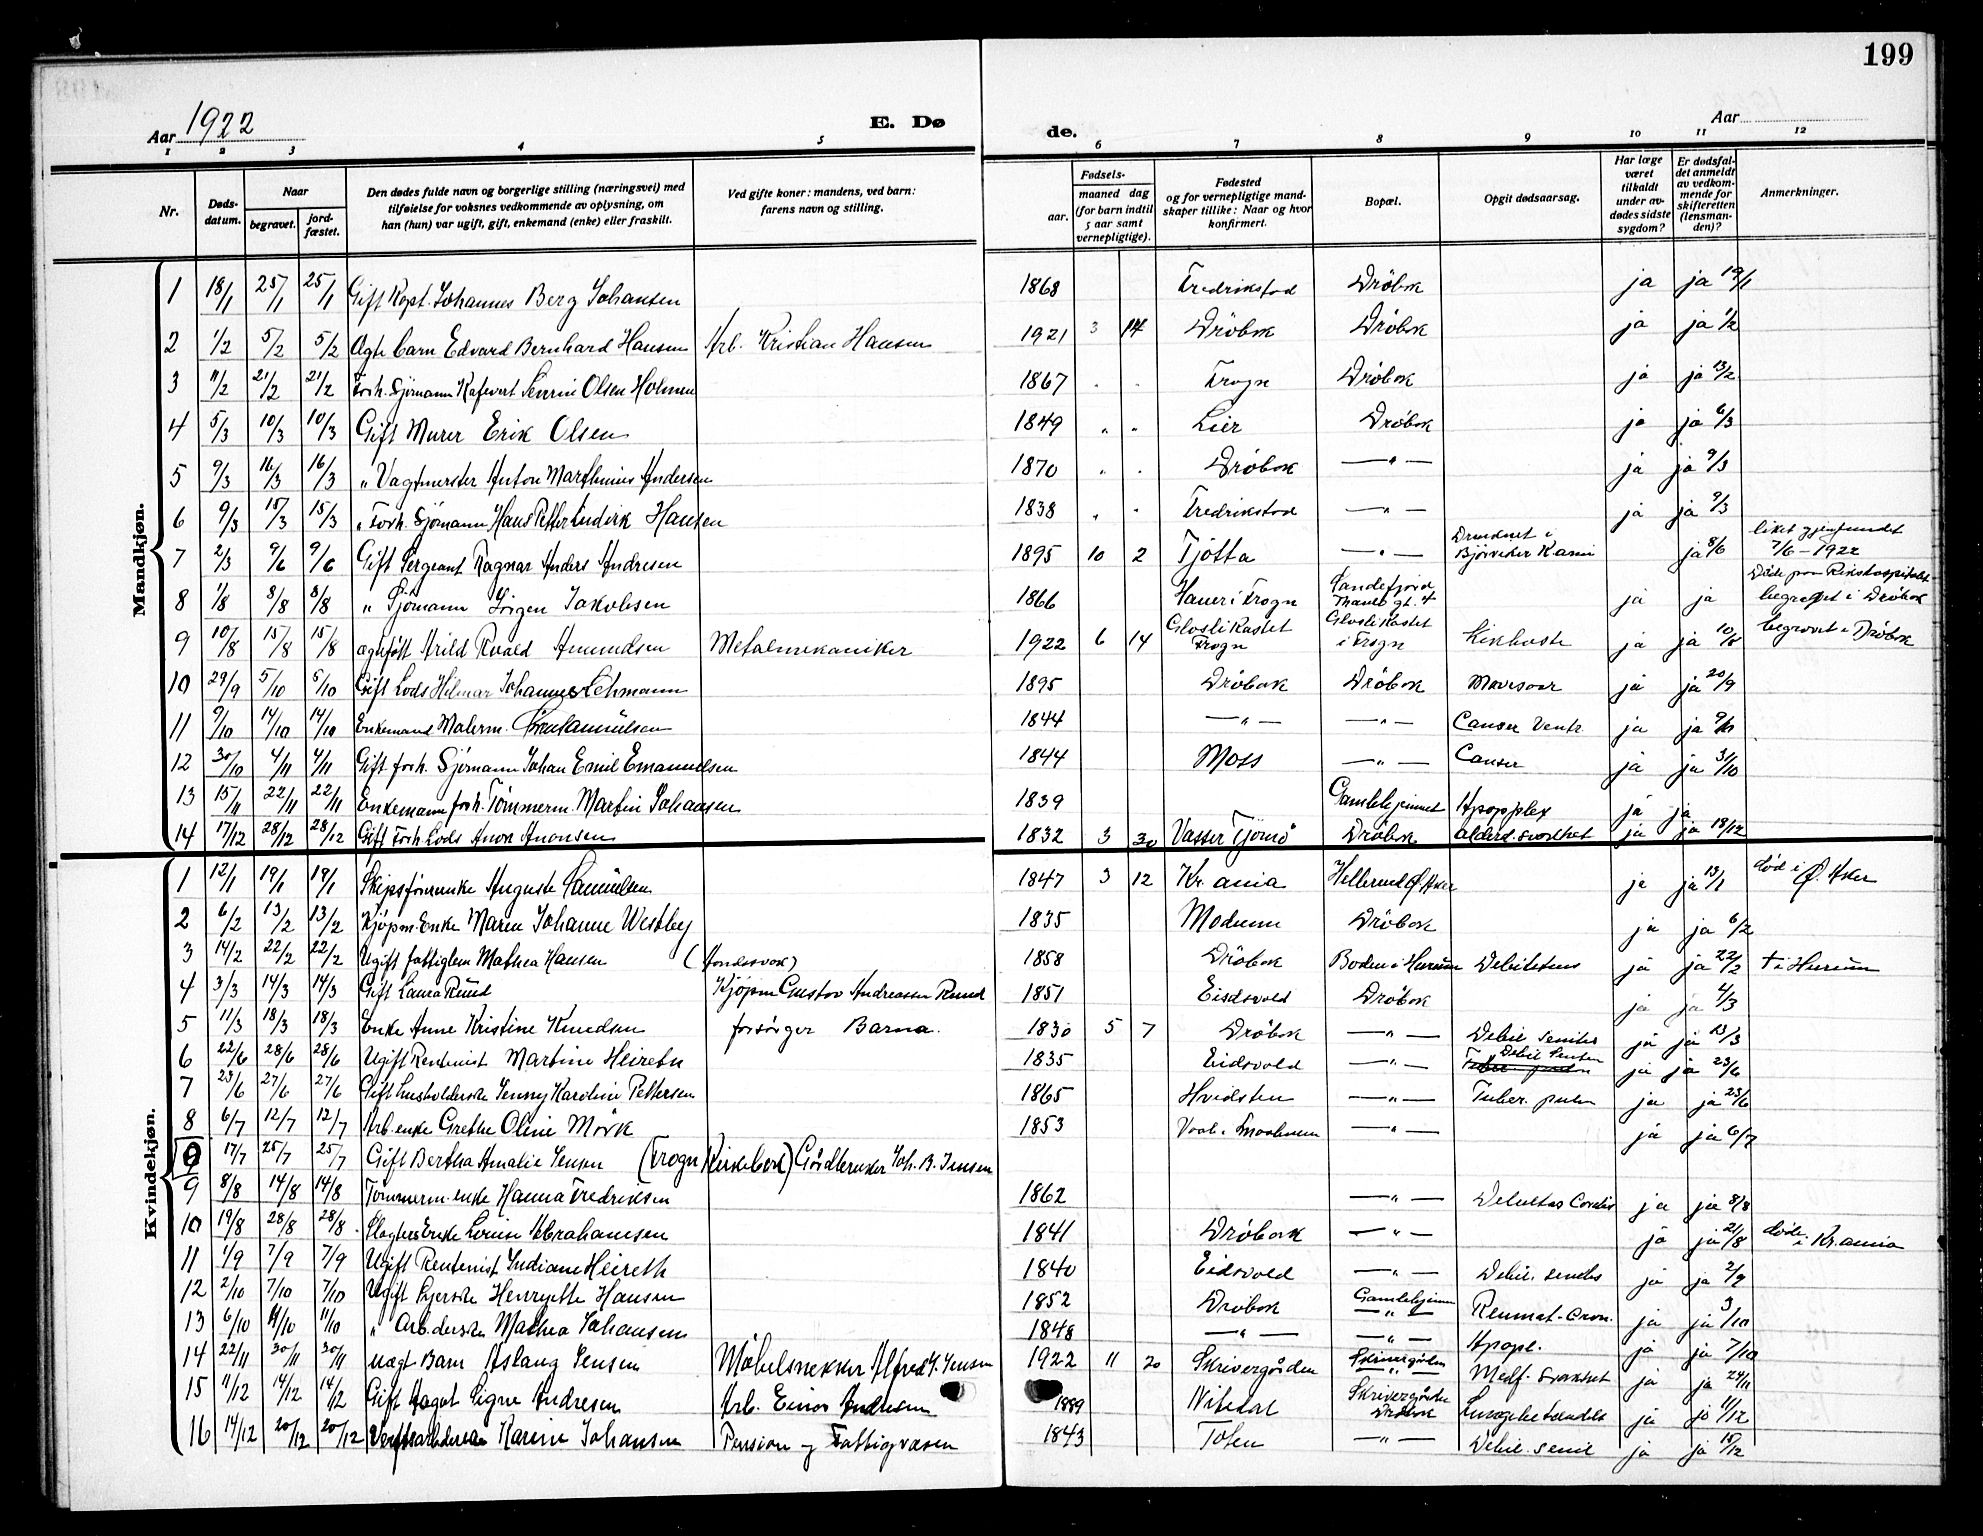 199
Aar 1922
E. Dø
de.
Aar
1 2 3 4 5 6 7 8 9 10 11 12
Nr.
Døds-datum.
Naar
begravet.
jord-fæstet.
Den dødes fulde navn og borgerlige stilling (næringsvei) med
tilføielse for voksnes vedkommende av oplysning, om
han (hun) var ugift, gift, enkemand (enke) eller fraskilt.
Ved gifte koner: mandens, ved barn:
farens navn og stilling.
Fødsels-
aar.
maaned dag
(for barn indtil
5 aar samt
vernepligtige).
Fødested
og for vernepligtige mand-
skaper tillike: Naar og hvor
konfirmert.
Bopæl.
Opgit dødsaarsag.
Har læge
været
tilkaldt
under av-
dødes sidste
sygdom?
Er dødsfal-
det anmeldt
av vedkom-
mende for
skifteretten
(lensman-
den)?
Anmerkninger.
Mandkjøn.
1 18/1 25/1 25/1 Gift Kapt. Johannes Berg Johansen 1868 Fredrikstad Dröbak ja ja 19/1
2 1/2 5/2 5/2 Ægte barn Edvard Bernhard Hansen Arb. Kristian Hansen 1921 3 14 Dröbak Dröbak ja ja 1/2
3 11/2 21/2 21/2 Forh. Sjömann Kafevert Olsen Holmen 1867 " " Frogn Dröbak ja ja 13/2
4 5/3 10/3 10/3 Gift Murer Erik Olsen 1849 " " Lier Dröbak ja ja 6/3
5 9/3 16/3 16/3 " Vagtmester Anton Marthinius Andersen 1870 " " Dröbak — " — ja ja 9/3
6 9/3 15/3 15/3 " Forh. Sjømann Hans Petter Hansen 1838 " " Fredrikstad — " — ja ja 9/3
7 2/3 9/6 9/6 Gift Sergeant Ragnar Anders Andresen 1895 10 2 Tjøtta — " — Druknet i ja 8/6 liket gjenfundet 7/6 - 1922
8 1/8 8/8 8/8 " Sjömann Jörgen Jakobsen 1866 Hauer i Frogn Sandefjord gt. 4 ja ja Döde paa Rikshospitalet begravet i Dröbak
9 10/8 15/8 15/8 Arild Roald Amundsen Metalmekaniker 1922 6 14 Frogn i Frogn Kikhoste ja ja 10/8 begravet i Dröbak
10 29/9 5/10 5/10 Gift Lods Hilmar Johannes Lehmann 1895 Dröbak Dröbak Mavesaar ja ja 20/9
11 9/10 14/10 14/10 Enkemand Malerm. Samuelsen 1844 — " — — " — Canser Ventr. ja ja
12 30/10 4/11 4/11 Gift forh. Sjömann Johan Emil Emanuelsen 1844 Moss — " — Canser ja ja 3/10
13 15/11 22/11 22/11 Enkemann forh. Tømmerm. Martin Johansen 1839 Gamlehjemmet Apopplex ja ja
14 17/12 28/12 28/12 Gift Forh. Lods Anon Anonsen 1832 3 30 Vasser Tjömö Dröbak alderd. svakhet ja ja 18/12
Kvindekjøn.
1 12/1 19/1 19/1 Auguste Samuelsen 1847 3 12 Kr.ania Hellerud Ø. Aker ja ja 13/1 död i Ø. Aker
2 6/2 13/2 13/2 Kjöpm. Enke Maren Johanne Westby 1835 Modum Dröbak ja ja 6/2
3 14/2 22/2 22/2 Ugift fattiglem Mathea Hansen (Aandssvak) 1858 Dröbak Boden i Hurum ja ja 22/2 † i Hurum
4 3/3 14/3 14/3 Gift Laura Ruud Kjöpm Gustav Andreassen Ruud 1851 Eidsvold Dröbak ja ja 4/3
5 11/3 18/3 18/3 Enke Anne Kristine Knudsen forsörger Barna. 1830 5 7 Dröbak — " — Debil. Senilis ja ja 13/3
6 22/6 28/6 28/6 Ugift Rentenist Martine Heireth 1835 Eidsvold — " — ja ja 23/6
7 23/6 27/6 27/6 Gift husholderske Jenny Karoline Pettersen 1865 Hvidsten — " — Tuber. pulm ja ja 23/6
8 6/7 12/7 12/7 Arb. enke Grethe Oline Mörk 1853 Vaal. Smaalenene — " — ja ja 6/7
9 17/7 25/7 25/7 Gift Bertha Amalie Jensen (Frogn Kirkebok) Gårdbruker Joh. B. Jensen
9 8/8 14/8 14/8 Tømmerm. enke Hanna Fredriksen 1862 — " — Debilitas Cordis ja ja 8/8
10 19/8 28/8 28/8 Slagters Enke Louise Abrahamsen 1841 Dröbak — " — ja ja 21/8 döde i Kr.ania
11 1/9 7/9 7/9 Ugift Rentenist Indiane Heireth 1840 Eidsvold — " — Debil. senilis ja ja 2/9
12 2/10 7/10 7/10 Ugift Syerske Henryette Hansen 1852 Dröbak Gamlehjem — " — Reumat. Cron. ja ja 3/10
13 6/10 11/10 11/10 " Arb.derske Mathea Johansen 1848 — " — — " — Apopl. ja ja 7/10
14 22/11 30/11 30/11 uægt Barn Aslaug Jensen Møbelsnekker Alfred J. Jensen 1922 11 20 Skrivergården Skrivergården Medf. Svakhet ja ja 24/11
15 11/12 14/12 14/12 Gift Aagot Signe Andresen Arb. Einar Andresen 1889 Nitedal Skrivergården Dröbak ja ja 11/12
16 14/12 20/12 20/12 Karine Johansen Pension og Fattigvæsen 1843 Toten — " — Debil. senil ja ja 15/12